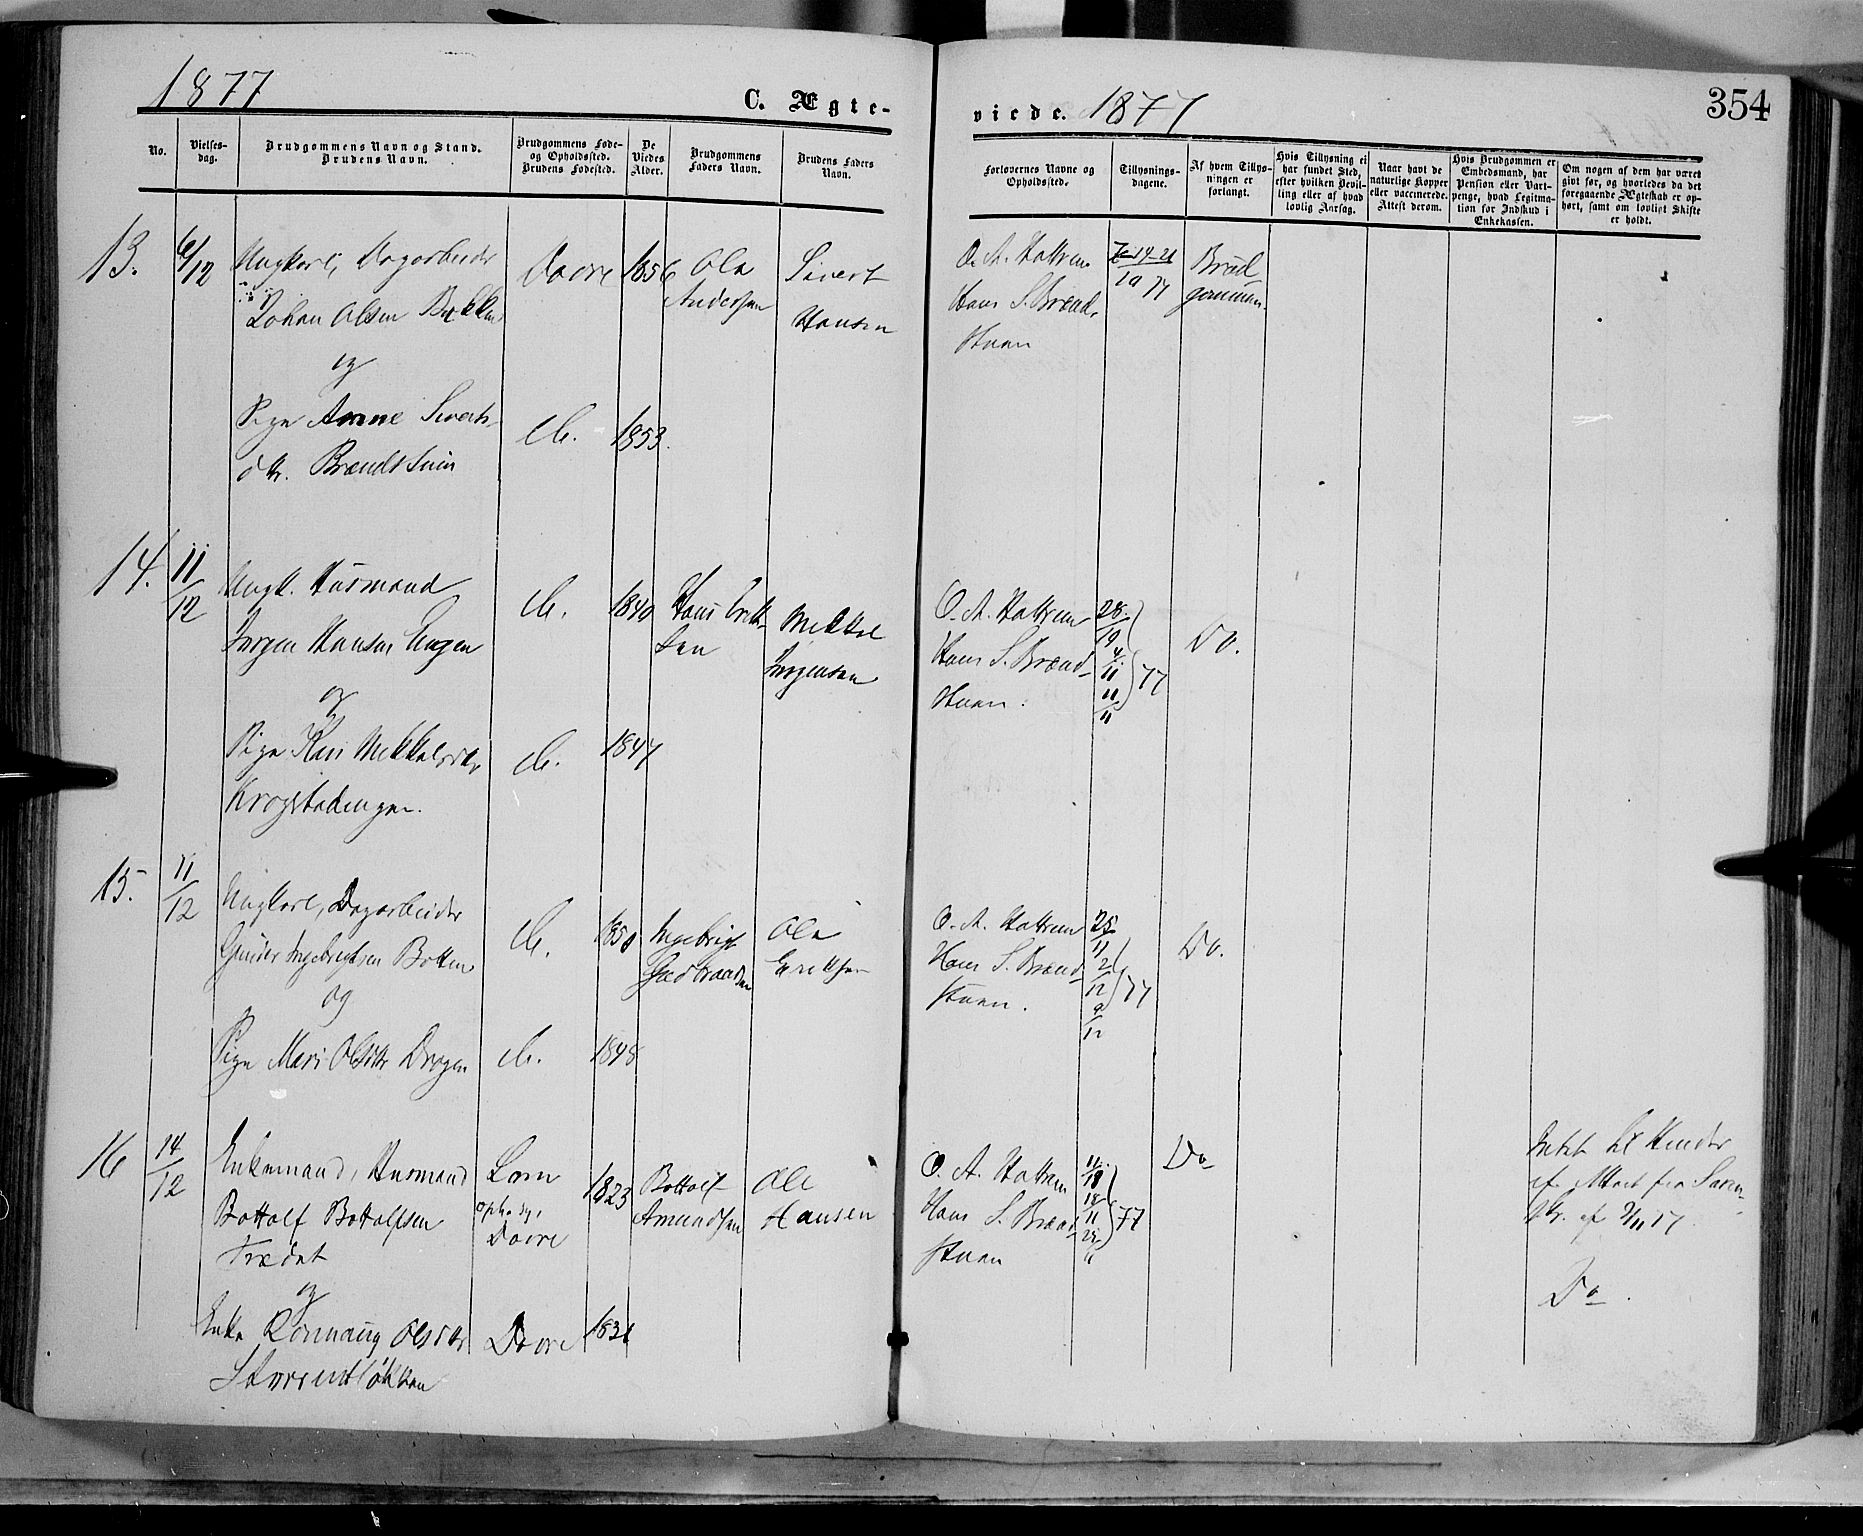 1877
C. Ægte-
No.
Vielses-
dag.
Brudgommens Navn og Stand.
Brudens Navn.
Brudgommens Føde-
og Opholdssted.
Brudens Fødested.
De
Viedes
Alder.
Brudgommens
Faders Navn.
Brudens Faders
Navn.
13.
6/12
Ungkarl, Dagarbeider
Johan Olsen Bekken
og
Pige Anne Siverts-
dtr. Brændstuen
Dovre
do.
1856
1853.
Ola
Andersen
Sivert
Hansen
14.
11/12
Ungk. Husmand
Jørgen Hansen Engen
og
Pige Kari Mekkelsdtr
Krogstadengen.
do.
do.
1840
1847
Hans Erik-
sen
Mekkel
Jørgensen
15.
11/12
Ungkarl, Dagarbeider
Ingebrigtsen Botten
og
Pige Mari Olsdtr Dragen
do.
do.
1850
1848
Ingebrigt
Gudbrandsen
Ola
Eriksen
16
14/12
Enkemand, Husmand
Bottolf Bottolfsen
Trædet
og
Enke Rønnaug Olsdtr
Lom
Dovre
Dovre
1823
Bottolf
Amundsen
Ole
Hansen
viede. 1877
354
Forlovernes Navne og
Opholdssted.
Tillysnings-
dagene.
Af hvem Tillys-
ningen er
forlangt.
Hvis Tillysning ei
har fundet Sted,
efter hvilken Bevil-
ling eller af hvad
lovlig Aarsag.
Naar havt de
naturlige Kopper
eller vaccinerede.
Attest derom.
Hvis Brudgommen er
Embedsmand, har
Pension eller Vart-
penge, hvad Legitima-
tion for Indskud i
Enkekassen.
Om nogen af dem har været
givt før, og hvorledes da det
foregaaende Ægteskab er op-
hørt, samt om lovligt Skifte
er holdt.
O. A. Hattrem
Hans S. Brænd-
stuen
7-14-21
10 77
Brud
gommen.
O. A. Hattrem
Hans S. Brænd-
stuen.
28/10
4/11
11/11
77
Do.
O. A. Hattrem
Hans S. Brænd-
stuen.
25/11
2/12
9/12
77
Do.
O. A. Hattrem
Hans S. Brænd-
stuen
11/11
18/11
25/11
77
Do
Intet til Hinder
Do.